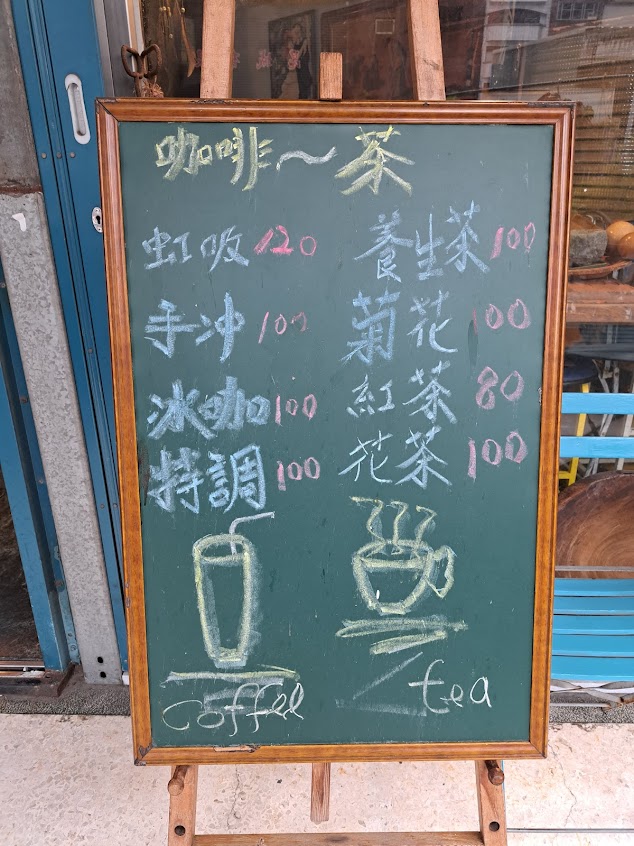 咖啡～茶
虹吸 120 養生茶 100
手冲 100 菊花 100
冰咖 100 紅茶 80
特調 100 花茶 100
coffee tea